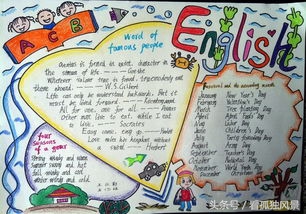 A B C
word of
famous people
English
Genius is formed in quiet, character in
the stream of life. —— Goethe
Wherever valour true is found, true modesty will
there abound. —— W.S. Gilbert
Life can only be understood backwards, but it
must be lived forward. —— Kierkegaard
All for one, one for all. —— Dumas
Other men live to eat, while I eat
to live. —— Socrates
Easy come, easy go. —— Hazlitt
Love rules his kingdom without
a sword. —— Herbert
four
seasons
of a year
Spring windy and warm
Summer sunny and hot
fall windy and cool
winter windy and cold
Festival and the according month
January New Year's Day
February Valentine's Day
March Women's Day
April April Fool's Day
May May Day
June Children's Day
July
August Army Day
September Teachers' Day
October National Day
November
December Christmas
头条号 / 看孤独风景